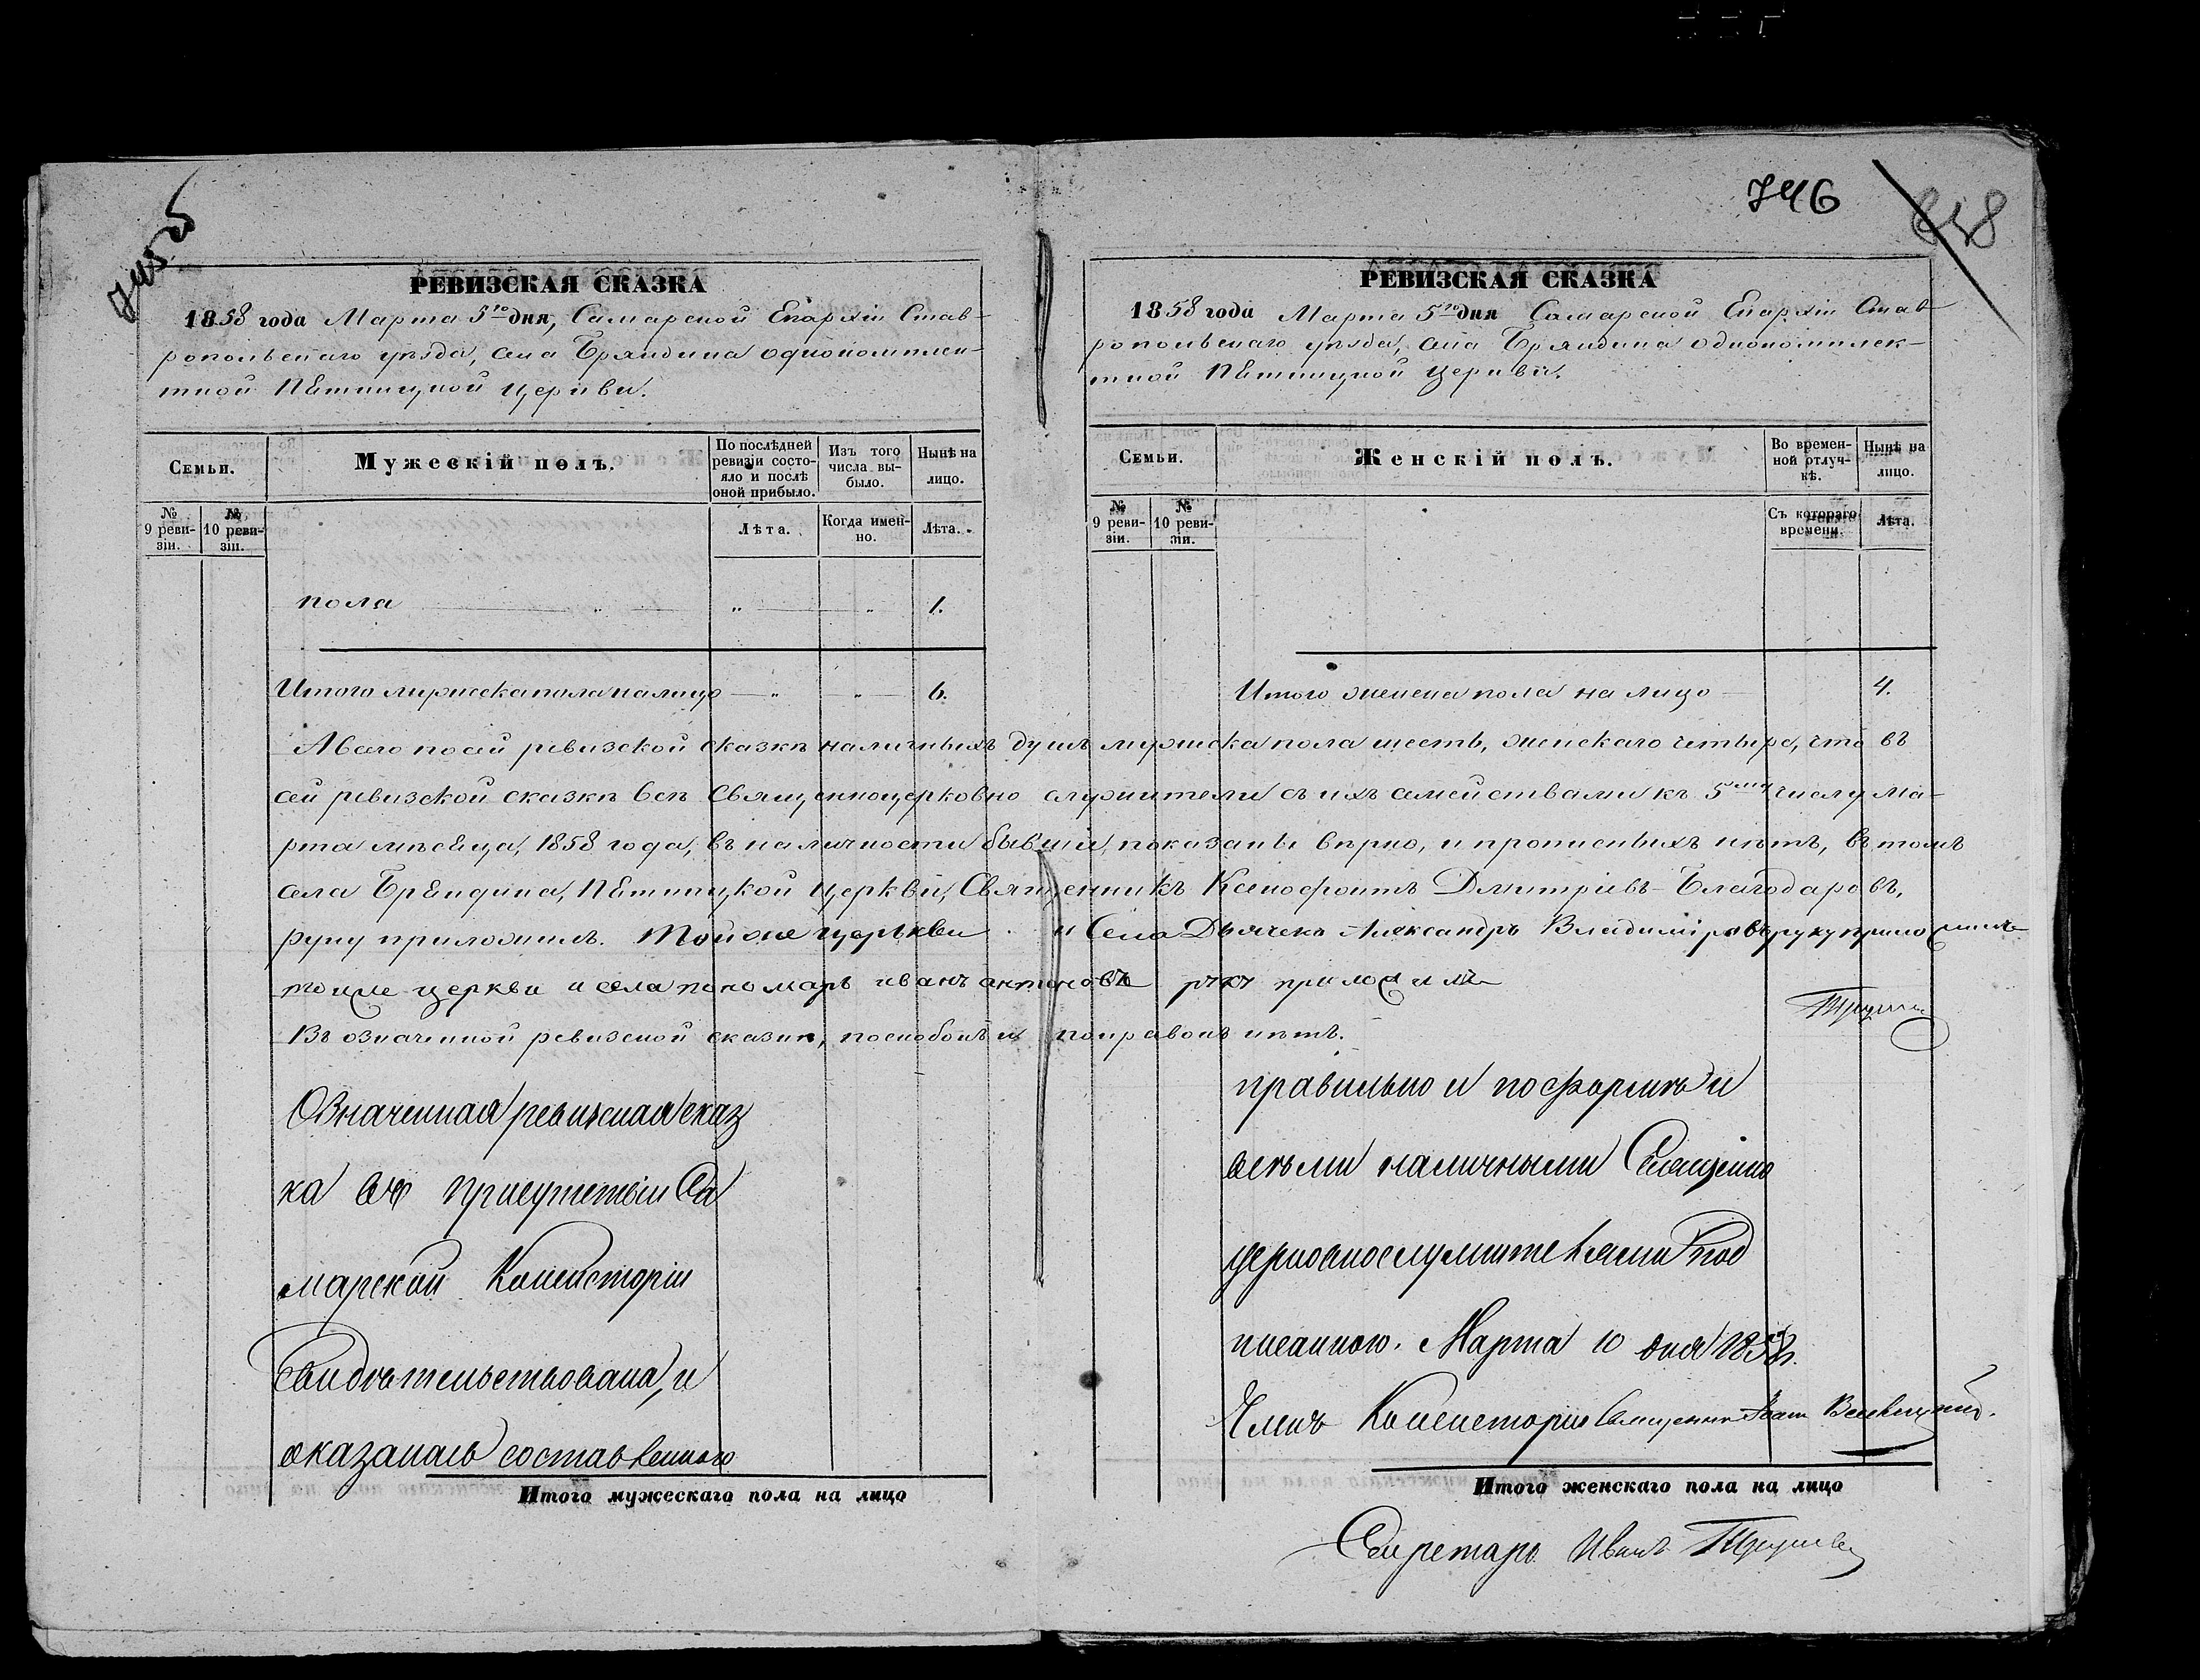 746
РЕВИЗСКАЯ СКАЗКА
1858 года Марта 5го дня, Самарской Епархіи Став-
ропольскаго уѣзда, села Бряндина однокомплек-
тной Пѣтницкой церкви.
Семьи.
Мужескій полъ.
По послѣдней ревизіи состояло и послѣ оной прибыло.
Изъ того числа выбыло.
Нынѣ на лицо.
№ 9 ревизіи.
№ 10 ревизіи.
Лѣта.
Когда именно.
Лѣта.
пола 〃 〃 〃 1.
Итого мужеска пола на лицо 〃 〃 6.
РЕВИЗСКАЯ СКАЗКА
1858 года Марта 5го дня Самарской Епархіи Став
ропольскаго уѣзда, села Бряндина однокомплек-
тной Пѣтницкой церкви.
Семьи.
Женскій полъ.
Во временной отлучкѣ.
Нынѣ на лицо.
№ 9 ревизіи.
№ 10 ревизіи.
Съ котораго времени.
Лѣта.
Итого женска пола на лицо 4.
А всего по сей ревизской сказкѣ наличныхъ душъ мужеска пола шесть, женскаго четыре, что въ
сей ревизской сказкѣ всѣ Священноцерковно служители съ ихъ семействами къ 5му числу Ма-
рта мѣсяца, 1858 года, въ наличности бывшіи, показаны вѣрно, и прописныхъ нѣтъ, въ томъ
села Брендина, Пѣтницкой Церкви, Священникъ Ксенофонтъ Дмитріевъ Благодаровъ,
руку приложилъ. Той же церкви и Села Дьячекъ Александръ Владиміровъ руку приложилъ
тоцже церкви и села пономарь иванъ антоновъ руку приложилъ
Въ означенной ревизской сказкѣ, поскобокъ и поправокъ нѣтъ.
Означенная ревизская сказ
ка въ присутствіи Са
марской Консисторіи
Свидѣтельствована, и
оказалась составленною
Итого мужескаго пола на лицо
правильно и по формѣ и
всѣми наличными Священно
церковнослужителями под
писанною. Марта 10 дня 1858 г.
Членъ Консисторіи Священникъ Іоан
Итого женскаго пола на лицо
Секретарь Иванъ